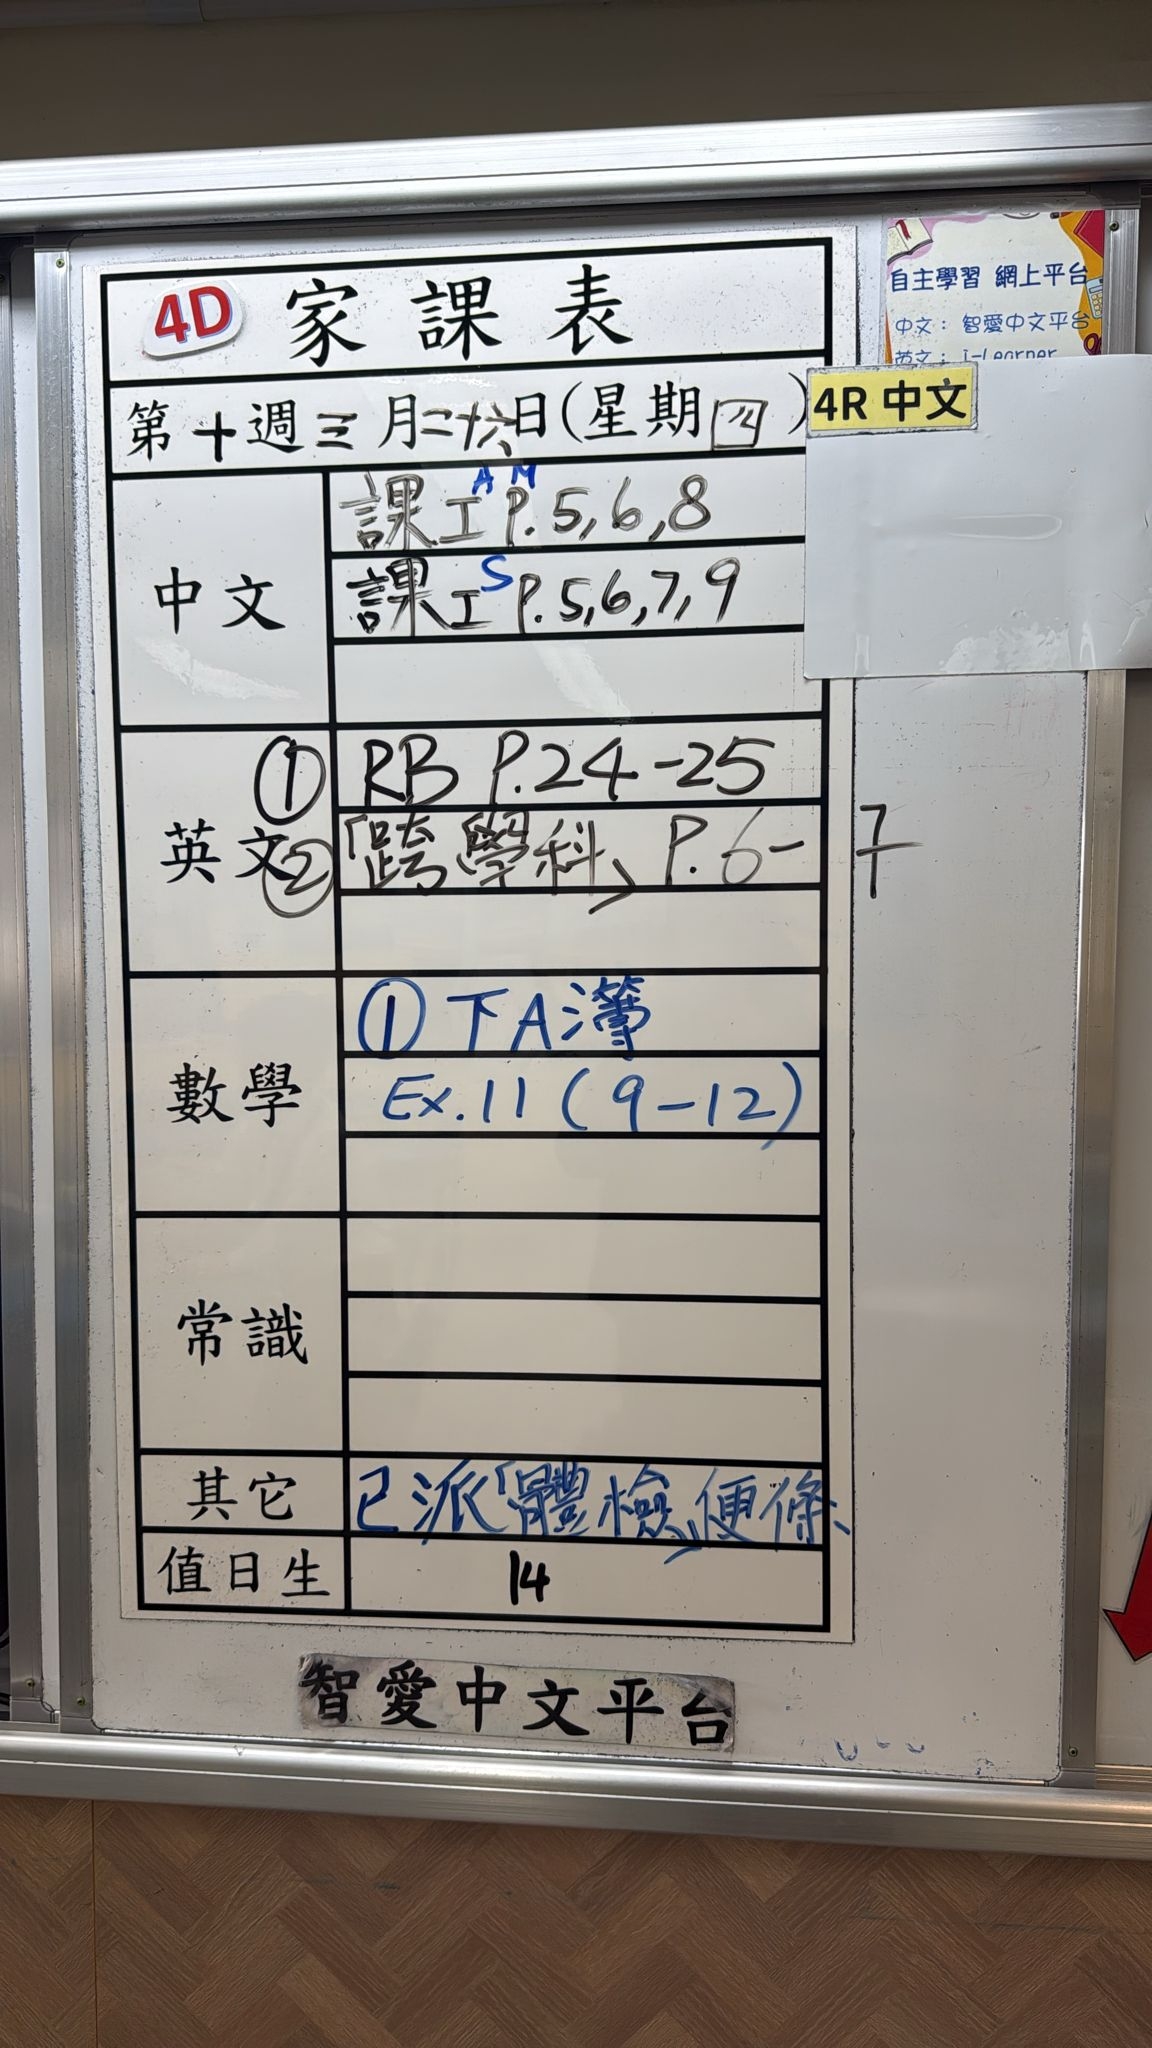 4D 家課表
第十週三月二十六日(星期四)
中文
課工 AM P.5,6,8
課工 S P.5,6,7,9
英文
① RB P.24-25
② 「跨學科」 P.6-7
數學
① 下A簿
Ex.11 (9-12)
常識
其它 已派「體檢」便條
值日生 14
智愛中文平台
自主學習 網上平台
中文: 智愛中文平台
英文: i-Learner
4R 中文